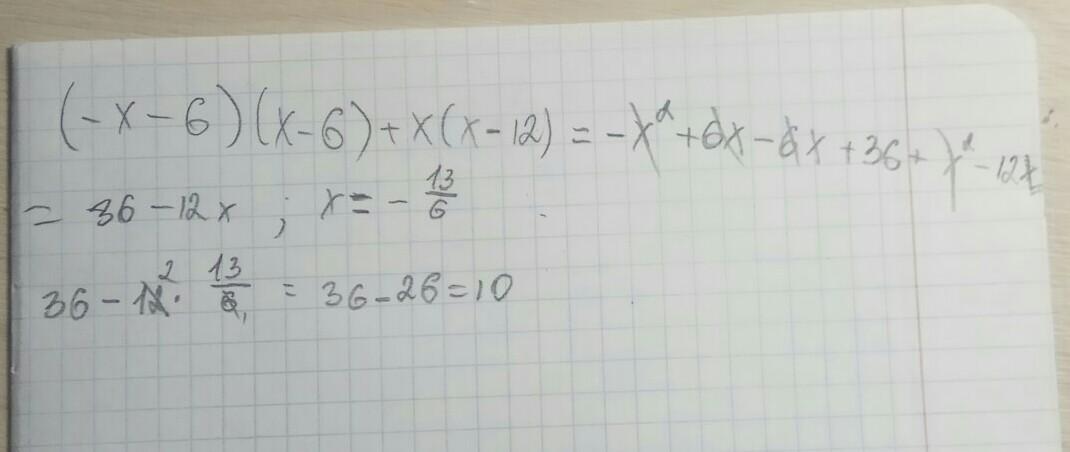 (-x-6)(x-6)+x(x-12) = -x²+6x-6x+36+x²-12x
= 36-12x ; x = -13/6
36-12² · 13/6₁ = 36-26=10